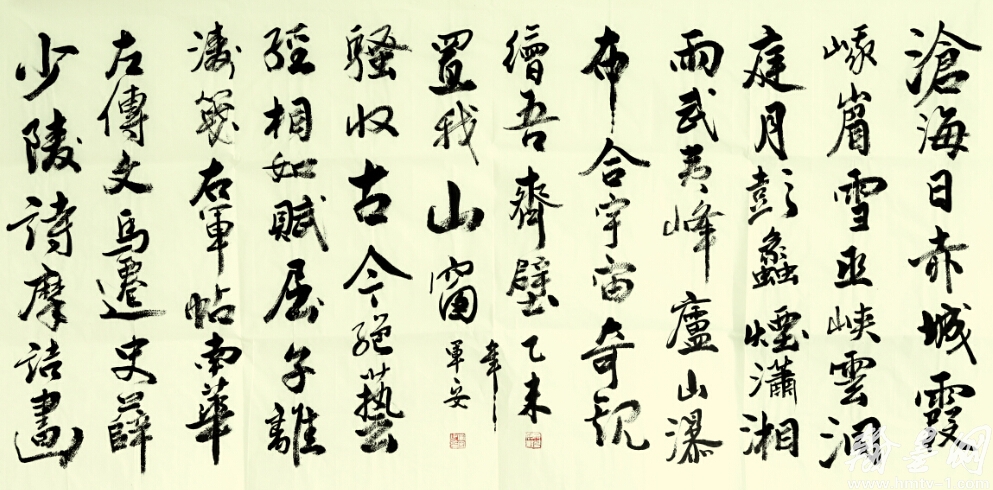 滄海日赤城霞
峨嵋雪巫峽雲洞
庭月彭蠡煙瀟湘
雨武夷峰廬山瀑
布合宇宙奇觀
繪吾齋壁
乙未
年
少陵詩摩詰畫
左傳文馬遷史薛
濤箋右軍帖南華
經相如賦屈子離
騷收古今絕藝
置我山窗
軍安